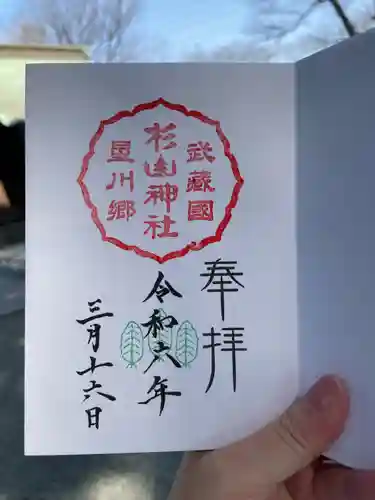 奉拝
武蔵國
杉山神社
星川郷
令和六年
三月十六日